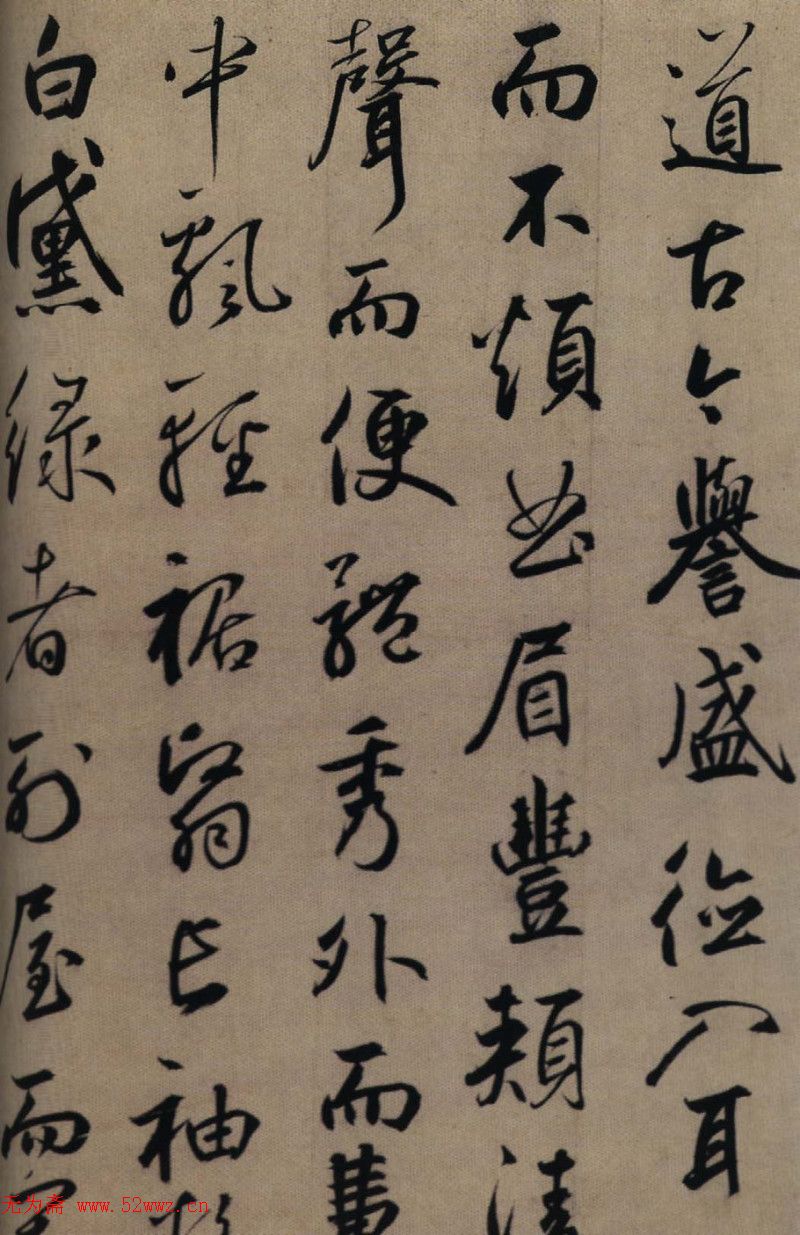 道古今譽盛德入耳
而不煩曲眉豐頰清
聲而便體秀外而惠
中飄輕裾翳長袖粉
白黛綠者列屋而閒
无为斋 www.52wwz.cn